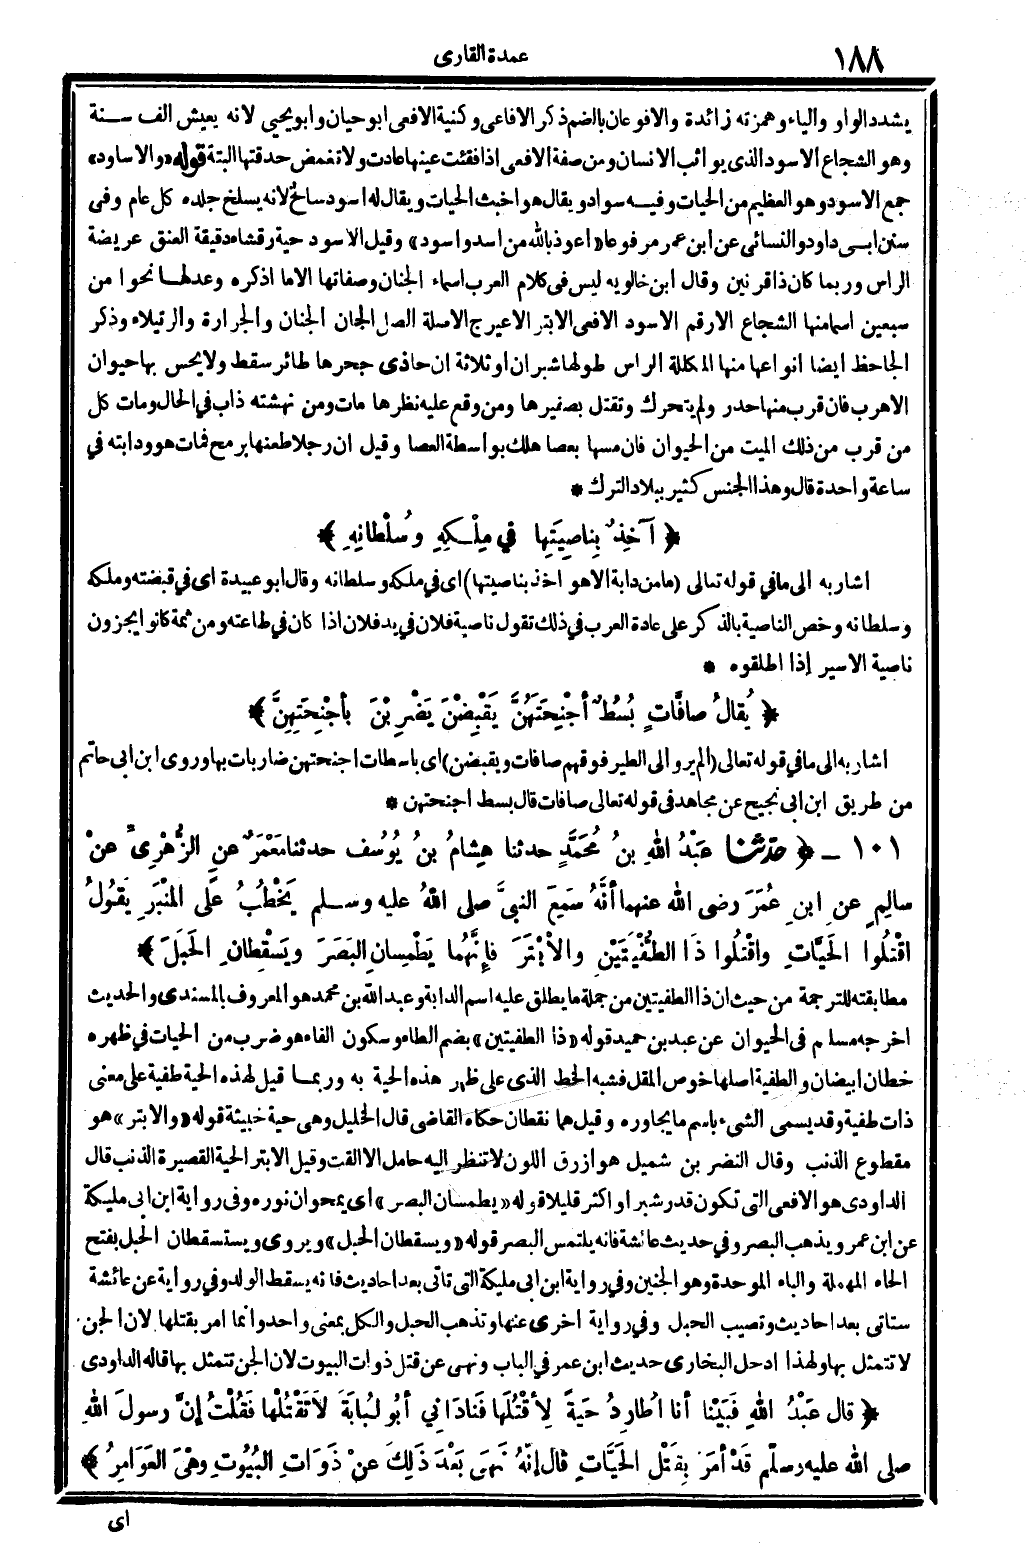 ١٨٨
عمدة القارى
يشدد الواو والياء وهمزته زائدة والافوعان بالضم ذكر الافاعى وكنية الافعى ابو حيان وابو يحيى لانه يعيش الف سنة
وهو الشجاع الاسود الذى يواثب الانسان ومن صفة الافعى اذا فقئت عينها عادت ولا تغمض حدقتها البتة قوله «والاساود»
جمع الاسود وهو العظيم من الحيات وفيه سواد ويقال هو اخبث الحيات ويقال له اسود سالخ لانه يسلخ جلده كل عام وفى
سنن ابى داود والنسائى عن ابن عمر مرفوعا «اعوذ بالله من اسد واسود» وقيل الاسود حية رقشاء دقيقة العنق عريضة
الراس وربما كان ذا قرنين وقال ابن خالويه ليس فى كلام العرب اسماء الجنان وصفاتها الا ما اذكره وعد لها نحوا من
سبعين اسما منها الشجاع الارقم الاسود الافعى الابتر الاعيرج الاصلة الصل الجان الجنان والجرارة والرتيلاء وذكر
الجاحظ ايضا انواعها منها المكللة الراس طولها شبران او ثلاثة ان حاذى جحرها طائر سقط ولا يحس بها حيوان
الا هرب فان قرب منها حدر ولم يتحرك وتقتل بصفيرها ومن وقع عليه نظرها مات ومن نهشته ذاب فى الحال ومات كل
من قرب من ذلك الميت من الحيوان فان مسها بعصا هلك بواسطة العصا وقيل ان رجلا طعنها برمح فمات هو ودابته في
ساعة واحدة قال وهذا الجنس كثير ببلاد الترك *
﴿ آخِذٌ بِناصِيَتِها في مِلْكِهِ وسُلْطانِهِ ﴾
اشار به الى ما في قوله تعالى (ما من دابة الا هو آخذ بناصيتها) اى في ملكه وسلطانه وقال ابو عبيدة اى في قبضته وملكه
وسلطانه وخص الناصية بالذكر على عادة العرب في ذلك تقول ناصية فلان في يد فلان اذا كان في طاعته ومن ثمة كانوا يجزون
ناصية الاسير إذا اطلقوه *
﴿ يُقالُ صافَّاتٍ بُسُطٌ أجْنِحَتَهُنَّ يَقْبِضْنَ يَضْرِبْنَ بأجْنِحَتِهِنَّ ﴾
اشار به الى ما في قوله تعالى (الم يروا الى الطير فوقهم صافات ويقبضن) اى باسطات اجنحتهن ضاربات بها وروى ابن ابى حاتم
من طريق ابن ابى نجيح عن مجاهد فى قوله تعالى صافات قال بسط اجنحتهن *
١٠١ ـ ﴿ حدثنا عَبْدُ اللهِ بنُ مُحَمَّدٍ حدثنا هِشامُ بنُ يُوسُفَ حدثنا مَعْمَرٌ عنِ الزُّهْرِىِّ عنْ
سالِمٍ عنِ ابنِ عُمَرَ رضى الله عنهما أنَّهُ سَمِعَ النبىَّ صلى اللهُ عليه وسلم يَخْطُبُ عَلَى المِنْبَرِ يَقُولُ
اقْتُلُوا الحَيَّاتِ واقْتُلُوا ذَا الطُّفْيَتَيْنِ والأبْتَرَ فإنَّهُما يَطْمِسانِ البَصَرَ ويَسْقِطانِ الحَبَلَ ﴾
مطابقته للترجمة من حيث ان ذا الطفيتين من جملة ما يطلق عليه اسم الدابة وعبد الله بن محمد هو المعروف بالمسندى والحديث
اخرجه مسلم فى الحيوان عن عبد بن حميد قوله «ذا الطفيتين» بضم الطاء وسكون الفاء هو ضرب من الحيات في ظهره
خطان ابيضان والطفية اصلها خوص المقل فشبه الخط الذى على ظهر هذه الحية به وربما قيل لهذه الحية طفية على معنى
ذات طفية وقد يسمى الشىء باسم ما يجاوره وقيل هما نقطان حكاه القاضى قال الخليل وهى حية خبيثة قوله «والابتر» هو
مقطوع الذنب وقال النضر بن شميل هو ازرق اللون لا تنظر اليه حامل الا القت وقيل الابتر الحية القصيرة الذنب قال
الداودى هو الافعى التى تكون قدر شبر او اكثر قليلا قوله «يطمسان البصر» اى يمحوان نوره وفى رواية ابن ابى مليكة
عن ابن عمر ويذهب البصر وفي حديث عائشة فانه يلتمس البصر قوله «ويسقطان الحبل» ويروى ويستسقطان الحبل بفتح
الحاء المهملة والباء الموحدة وهو الجنين وفي رواية ابن ابى مليكة التى تاتى بعد احاديث فانه يسقط الولد وفي رواية عن عائشة
ستاتى بعد احاديث وتصيب الحبل وفي رواية اخرى عنها وتذهب الحبل والكل بمعنى واحد وانما امر بقتلها لان الجن
لا تتمثل بها ولهذا ادحل البخارى حديث ابن عمر في الباب ونهى عن قتل ذوات البيوت لان الجن تتمثل بها قاله الداودى
﴿ قال عَبْدُ اللهِ فَبَيْنا أنا اُطارِدُ حَيةً لِأقْتُلَها فَنادَاني أبُو لُبابَةَ لاَ تَقْتُلْها فَقُلْتُ إنَّ رسولَ اللهِ
صلى الله عليه وسلّم قَدْ أمَرَ بِقَتْلِ الحَيَّاتِ قال إنّهُ نَهَى بَعْدَ ذَلِكَ عنْ ذَوَاتِ البُيُوتِ وهْىَ العَوَامِرُ ﴾
اى